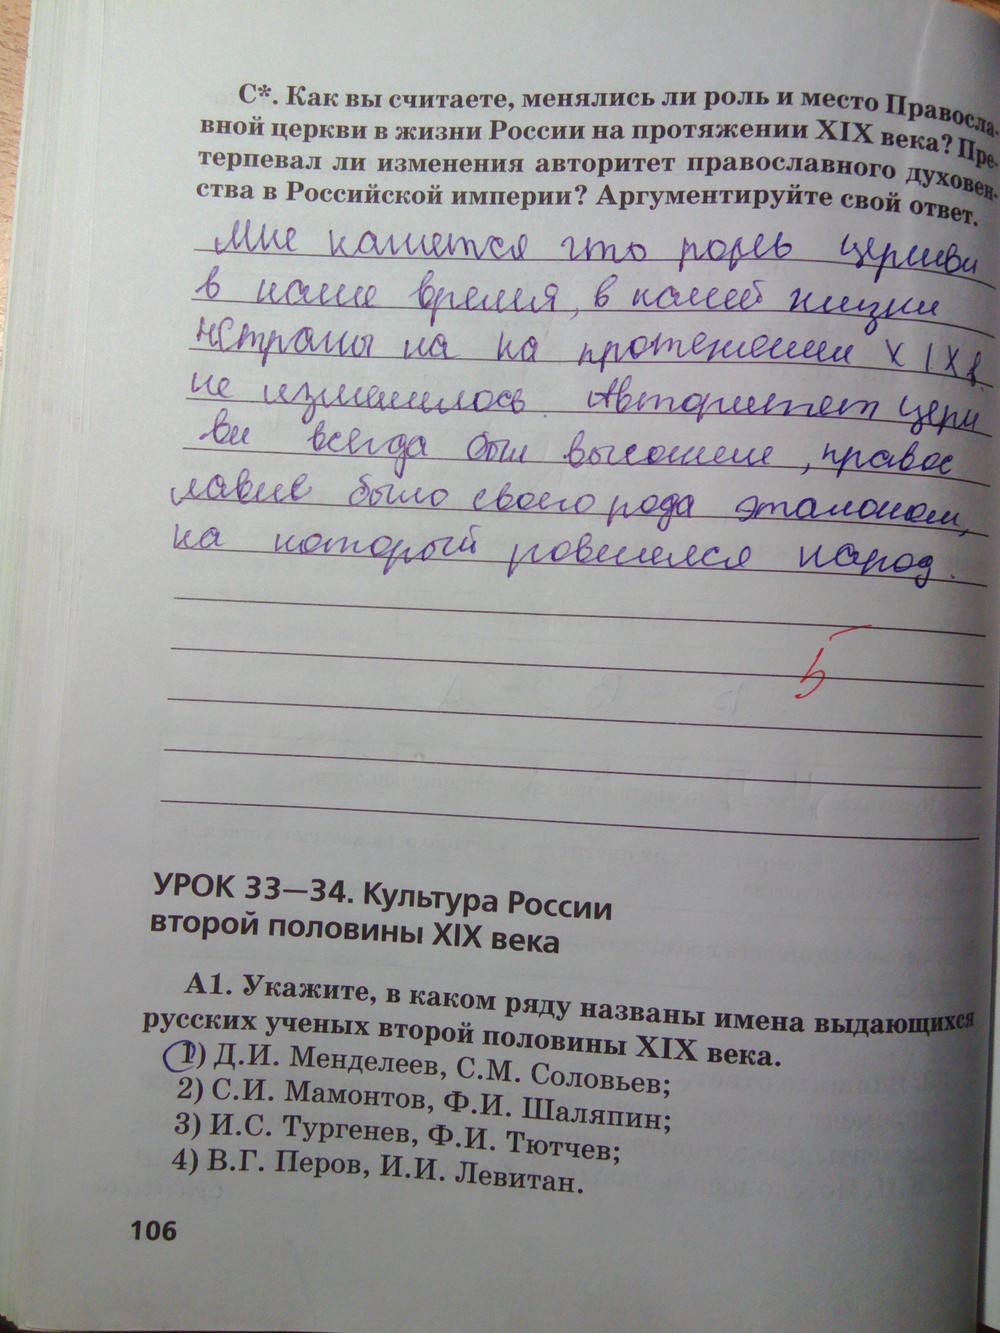 С*. Как вы считаете, менялись ли роль и место Правосла-
вной церкви в жизни России на протяжении XIX века? Пре-
терпевал ли изменения авторитет православного духовен-
ства в Российской империи? Аргументируйте свой ответ.
Мне кажется что роль церкви
в наше время, в нашей жизни
страны на на протежении XIXв
не изменилось. Авторитет церк
ви всегда был высоким, правос
лавие было своего рода эталоном,
на который ровнялся народ.
5
УРОК 33—34. Культура России
второй половины XIX века
А1. Укажите, в каком ряду названы имена выдающихся
русских ученых второй половины XIX века.
1) Д.И. Менделеев, С.М. Соловьев;
2) С.И. Мамонтов, Ф.И. Шаляпин;
3) И.С. Тургенев, Ф.И. Тютчев;
4) В.Г. Перов, И.И. Левитан.
106